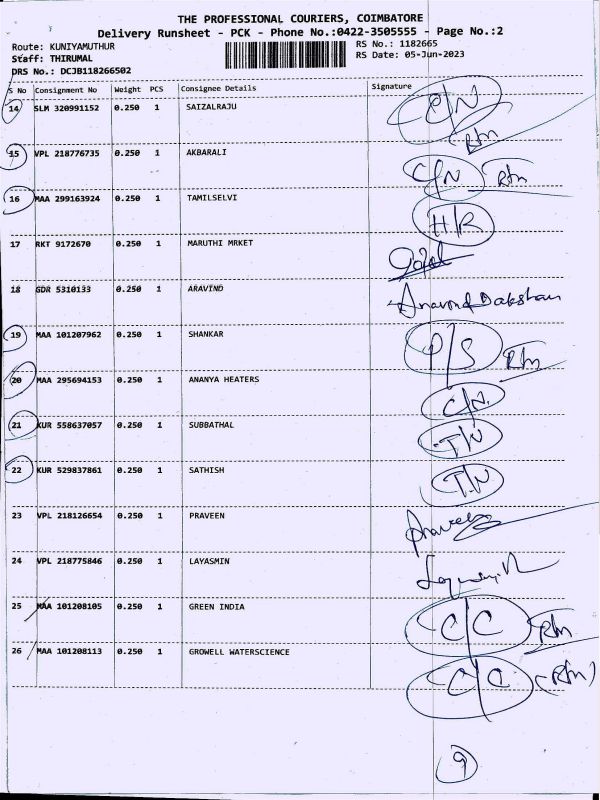 THE PROFESSIONAL COURIERS, COIMBATORE
Delivery Runsheet - PCK - Phone No.:0422-3505555 - Page No.:2
Route: KUNIYAMUTHUR RS No.: 1182665
Staff: THIRUMAL RS Date: 05-Jun-2023
DRS No.: DCJB118266502
S No Consignment No Weight PCS Consignee Details Signature
14 SLM 320991152 0.250 1 SAIZALRAJU
15 VPL 218776735 0.250 1 AKBARALI C/N Rtn
16 MAA 299163924 0.250 1 TAMILSELVI
17 RKT 9172670 0.250 1 MARUTHI MRKET
18 GDR 5310133 0.250 1 ARAVIND
19 MAA 101207962 0.250 1 SHANKAR P/S Rtn
20 MAA 295694153 0.250 1 ANANYA HEATERS C/N.
21 KUR 558637057 0.250 1 SUBBATHAL T/N
22 KUR 529837861 0.250 1 SATHISH T.N
23 VPL 218126654 0.250 1 PRAVEEN Praveen
24 VPL 218775846 0.250 1 LAYASMIN
25 MAA 101208105 0.250 1 GREEN INDIA C/C Rtn
26 MAA 101208113 0.250 1 GROWELL WATERSCIENCE C/C (Rtn)
9